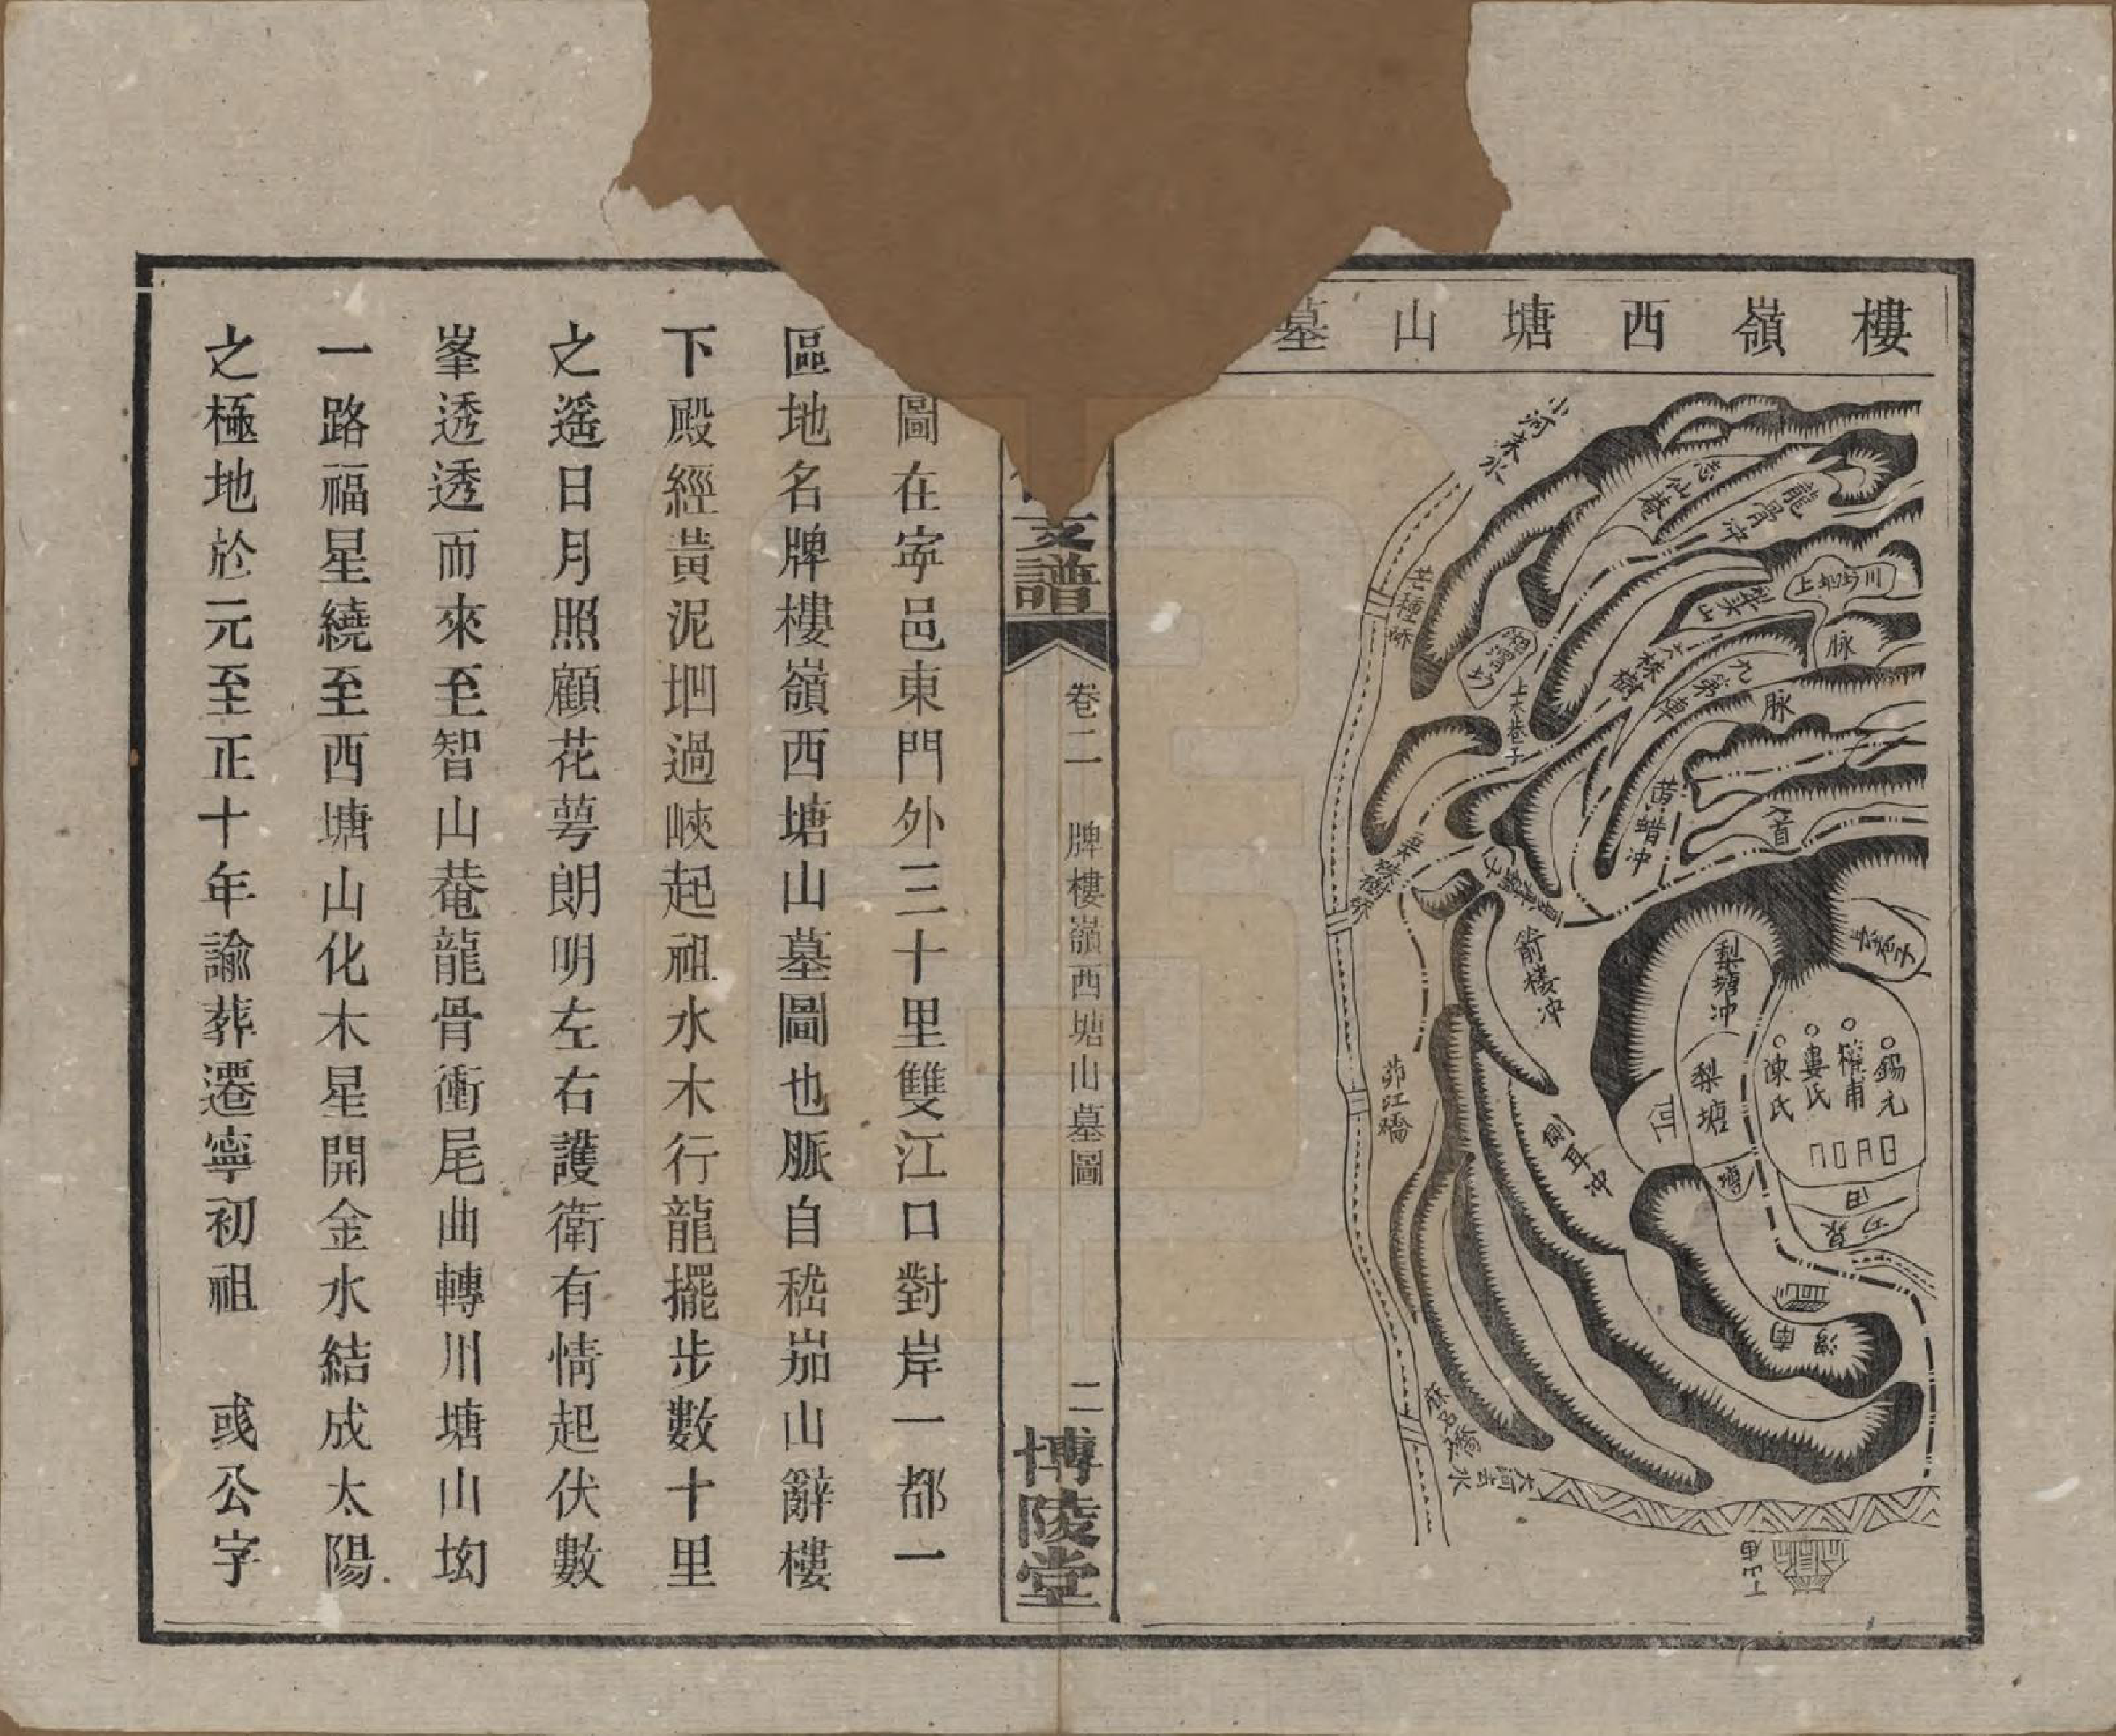 樓嶺西塘山墓
小河來水
志仙菴
龍骨冲
上𡊻塝川
筆架山
芒種嶠
湘灣㘭
六株樹
九第庫
脉
脉
上木巷子
茜蜡冲
入首
箭樓冲
梨塘冲
梨塘
錫元
權甫
婁氏
陳氏
茆江橋
側耳冲
塘
田
灣南
支譜
卷二
牌樓嶺西塘山墓圖
二
博陵堂
圖在寜邑東門外三十里雙江口對岸一都一
區地名牌樓嶺西塘山墓圖也脈自嵇茄山辭樓
下殿經黃泥坰過峽起祖水木行龍擺步數十里
之遥日月照顧花萼朗明左右護衛有情起伏數
峯透透而來至智山菴龍骨衝尾曲轉川塘山坳
一路福星繞至西塘山化木星開金水結成太陽
之極地於元至正十年諭葬遷寧初祖　彧公字